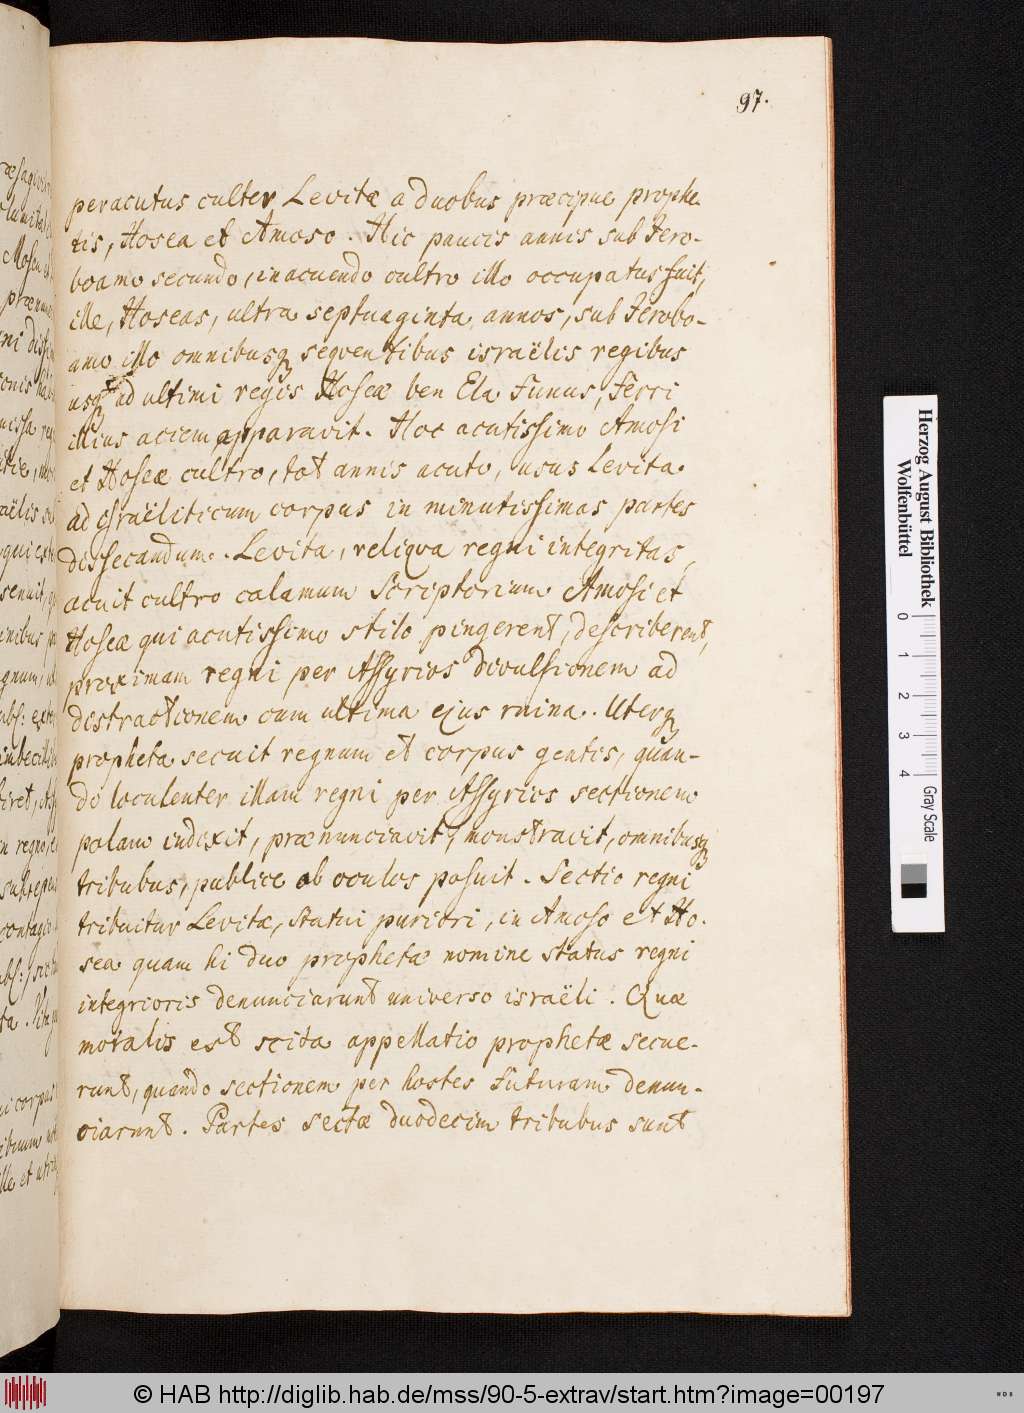 97.
peracutus culter Levitæ a duobus præcipue prophe
tis, Hosea et Amoso. Hic paucis annis sub Jero-
boamo secundo, in acuendo cultro illo occupatus fuit,
ille, Hoseas, ultra septuaginta annos, sub Jerobo-
amo illo omnibusq seqventibus israëlis regibus
usq ad ultimi regis Hoseæ ben Ela funus, ferri
illius aciem apparavit. Hoc acutissimo Amosi
et Hoseæ cultro, tot annis acuto, usus Levita.
ad Israëliticum corpus in minutissimas partes
dissecandum. Levita, reliqva regni integritas,
acuit cultro calamum scriptorium Amosi et
Hoseæ qui acutissimo stilo pingerent, describerent,
proximam regni per Assyrios divulsionem ad
distractionem cum ultima ejus ruina. Uterq
propheta secuit regnum et corpus gentis, quan-
do loculenter illam regni per Assyrios sectionem
palam indixit, prænunciavit, monstravit, omnibusq
tribubus, publice ob oculos posuit. Sectio regni
tribuitur Levitæ, statui puriori, in Amoso et Ho.
sea quam hi duo prophetæ nomine status regni
integrioris denunciarunt universo israëli. Quæ
moralis est scita appellatio prophetæ secue-
runt, quando sectionem per hostes futuram denun-
ciarunt. Partes sectæ duodecim tribubus sunt
Herzog August Bibliothek
Wolfenbüttel
0 1 2 3 4
Gray Scale
© HAB http://diglib.hab.de/mss/90-5-extrav/start.htm?image=00197